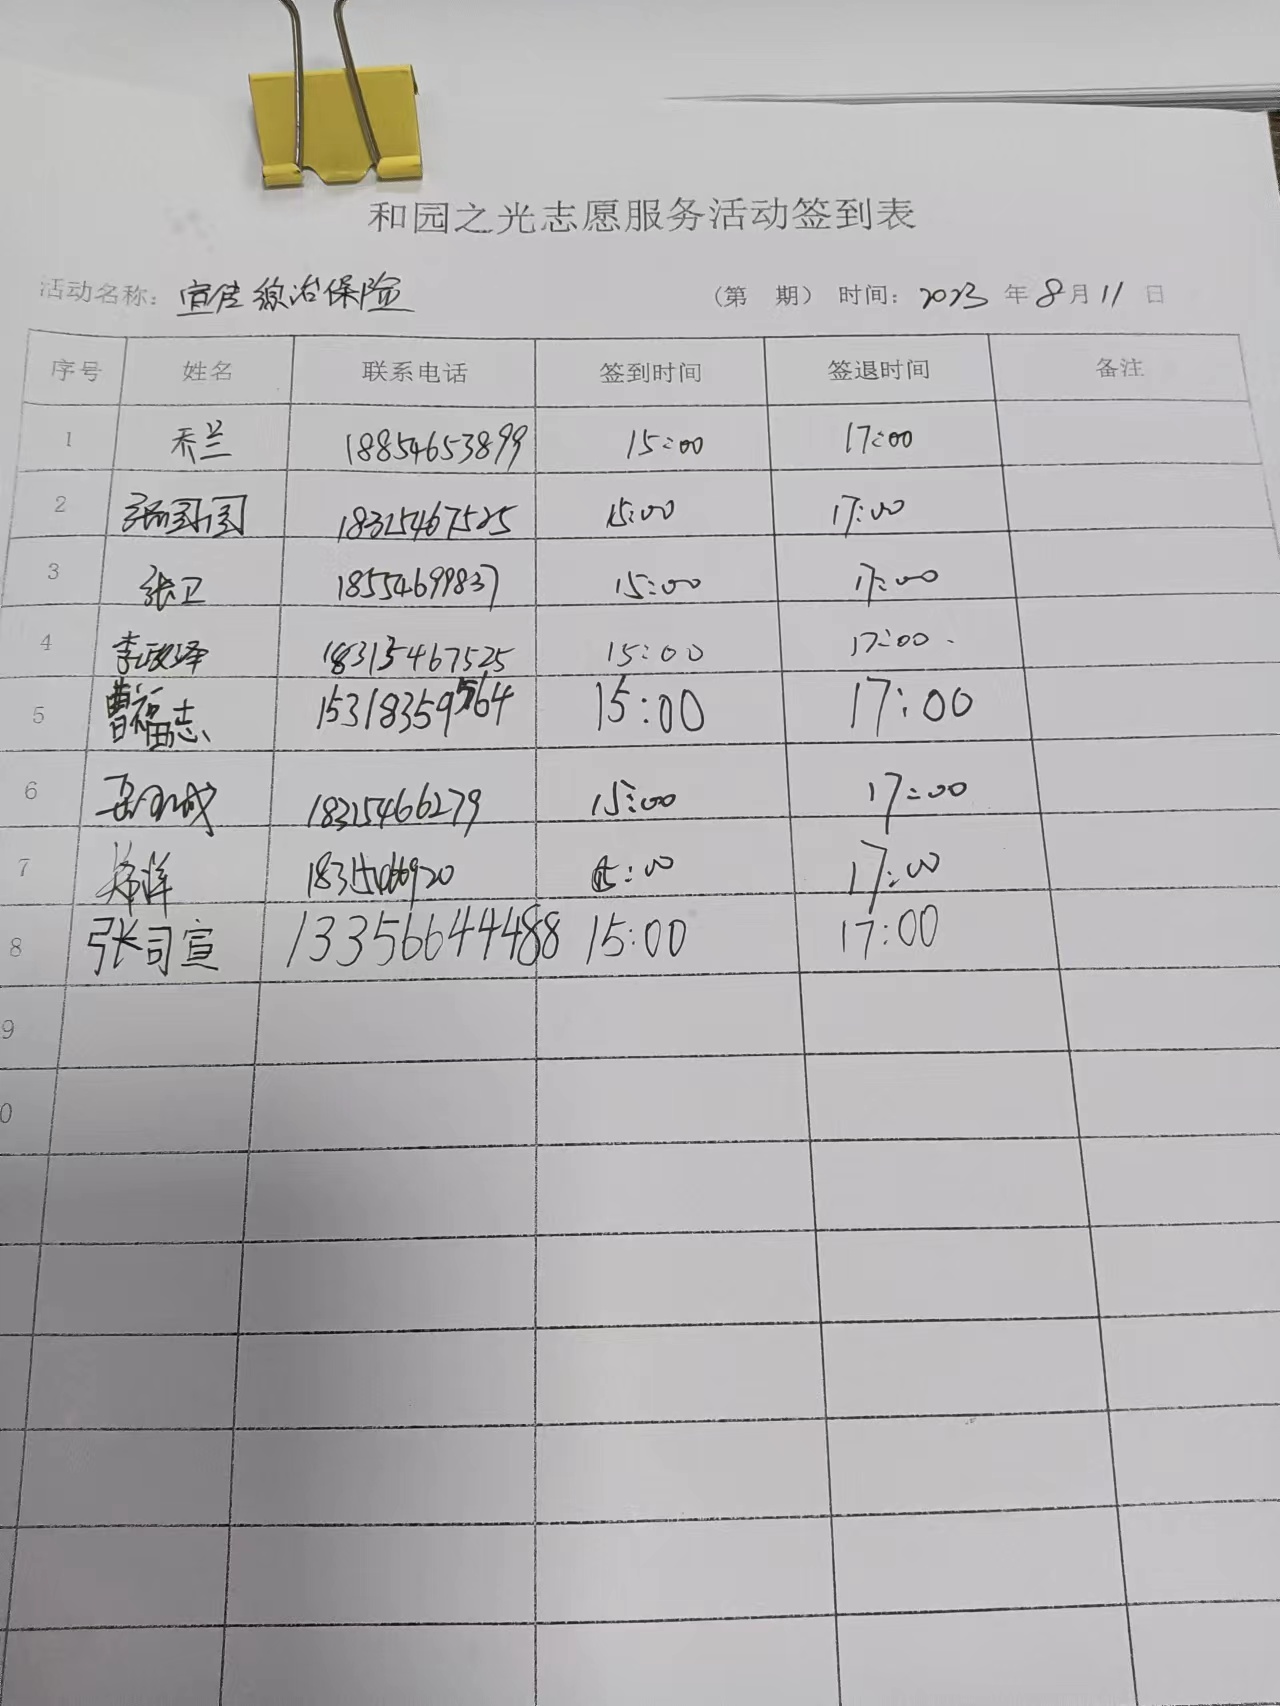 和园之光志愿服务活动签到表
活动名称：宣传综治保险 （第 期） 时间：2023 年 8 月 11 日
序号 姓名 联系电话 签到时间 签退时间 备注
1 乔兰 18854653899 15:00 17:00
2 18315467525 15:00 17:00
3 张卫 18554699837 15:00 17:00
4 李政泽 18315467525 15:00 17:00
5 曹福志 15318359564 15:00 17:00
6 18315466279 15:00 17:00
7 15:00 17:00
8 张司宣 13356644488 15:00 17:00
9
0